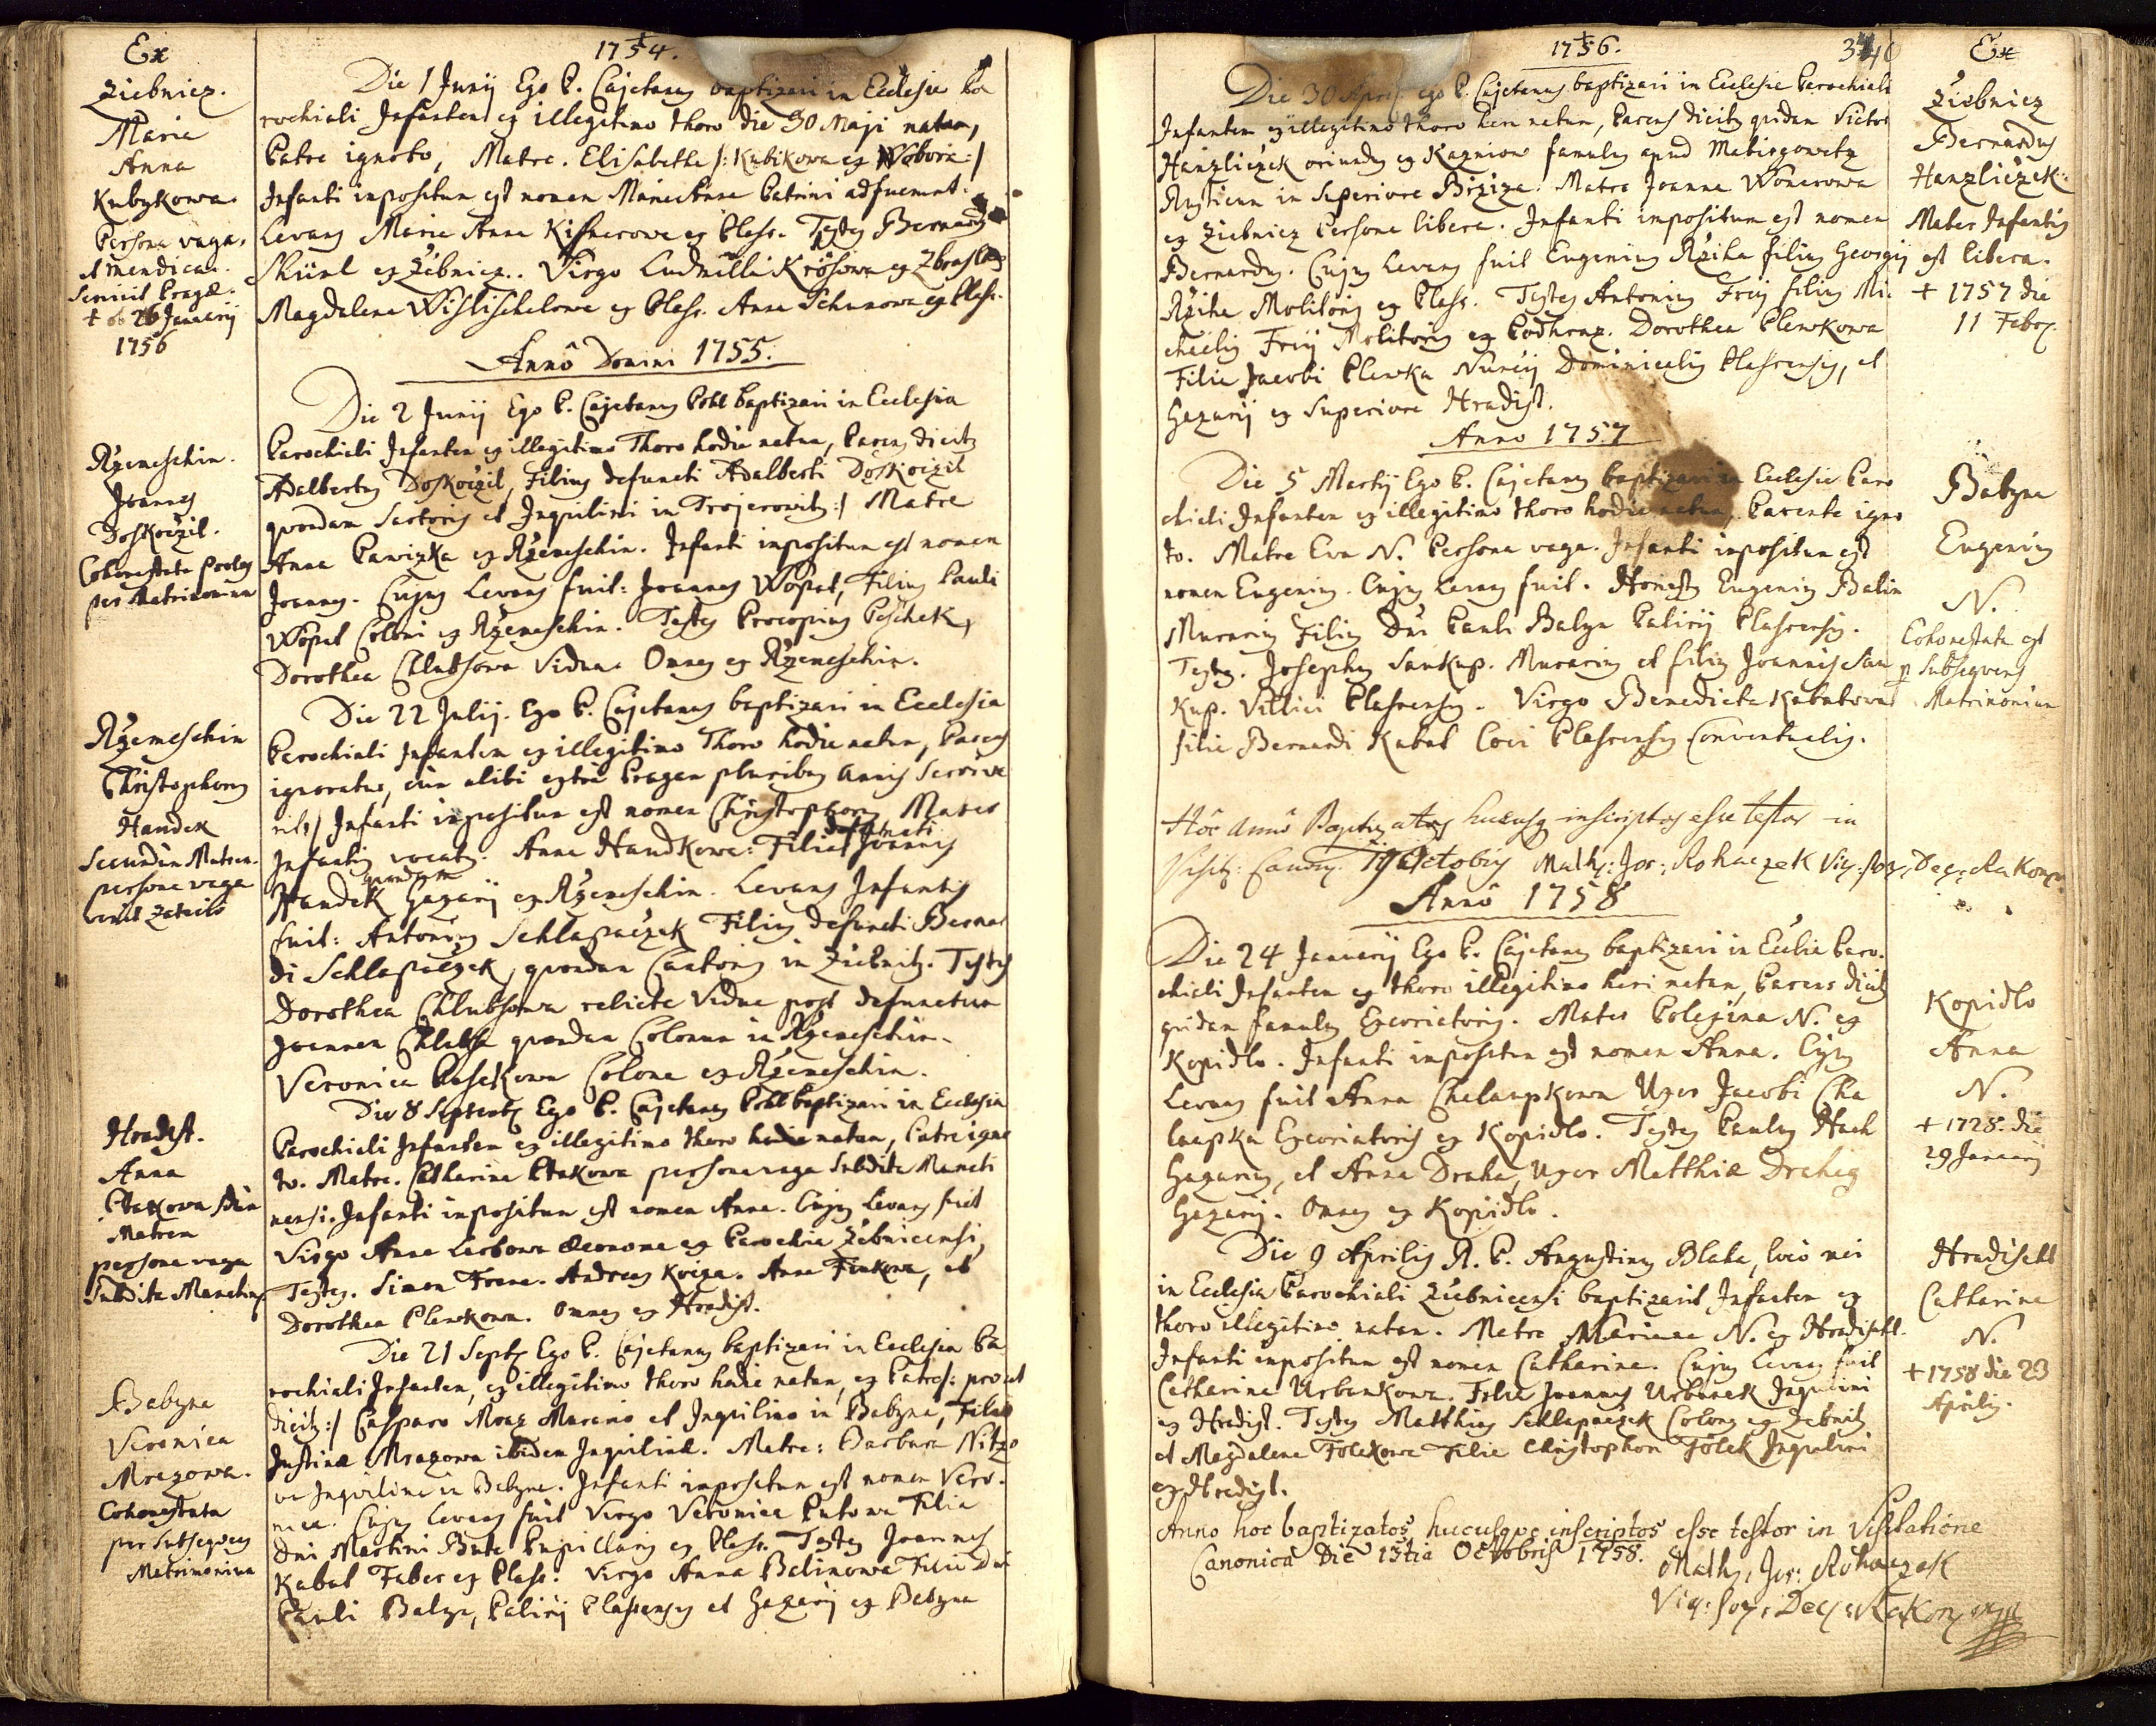 Ex
Ziebnicz.
Maria
Anna
Kubykowa.
Persona vaga,
et mendicans.
Servivit Pragæ.
† 26 Januarij
1756
1754.
Die 1 Junij Ego P. Cajetanus baptizavi in Ecclesia Pa
rochiali Infantem ex illegitimo thoro die 30 Maji natam,
Patre ignoto, Matre. Elisabetha /: Kubikowa ex Wobora :/
Infanti impositum est nomen Maria Anna Patrini adfuerunt.
Levans Maria Anna Kisnerowa ex Plass. Testes Bernardus
ex Zebnicz. Virgo Ludmilla Krösowa ex
Magdalena Wislischelowa ex Plass. Anna Schunowa ex Plass.
Annô Domini 1755.
Rzemeschin.
Joannes
Doskoczil.
Cohonestata Proles
per Matrimonium
Die 2 Junij Ego P. Cajetanus Pohl baptizavi in Ecclesia
Parochiali Infantem ex illegitimo Thoro hodie natum, Parens dicitur
Adalbertus Doskoczil, Filius defuncti Adalberti Doskoczil
quondam Sartoris et Inquilini in Trojerowitz :/ Matre
Anna ex Rzemeschin. Infanti impositum est nomen
Joannes. Cujus Levans fuit: Joannes Wopat, Filius Pauli
Wopat Coloni ex Rzemeschin. Testes Procopius Peschek,
Dorothea Chlubsowa Vidua. Omnes ex Rzemeschin.
Rzemeschin
Christophorus
Handek
Secundum Matrem.
persona vaga
Die 22 Julij. Ego P. Cajetanus baptizavi in Ecclesia
Parochiali Infantem ex illegitimo Thoro hodie natum, Parens
ignoratur, cum alibi extra Pragam pluribus annis servive
rit :/ Infanti impositum est nomen Christophorus Mater
Infantis vocatur. Anna Handkowa: Filia defuncti Joannis
Handek quondam Gazarij ex Rzemeschin. Levans Infantis
fuit: Antonius Schlapaczek Filius defuncti Bernar
di Schlapaczek, quondam Cantoris in Ziebnitz. Testes
Dorothea Chlubsowa relicta Vidua post defunctum
Joannem Chlubsa quondam Colonum in Rzemeschin.
Veronica Pasekowa Colona ex Rzemeschin.
Hradist.
Anna
Ptakowa secundum
Matrem
persona vaga
Subdita
Die 8 Septembris Ego P. Cajetanus Pohl baptizavi in Ecclesia
Parochiali Infantem ex illegitimo thoro hodie natam, Patre igno
to. Matre. Catharina Ptakowa persona vaga subdita Maneti
nensi. Infanti impositum est nomen Anna. Cujus Levans fuit
Virgo Anna œconoma ex Parochia Zebnicensi,
Testes. Simon Frana. Andreas Kviza. Anna Finkowa, et
Dorothea Plewkowa. Omnes ex Hradist.
Babyna
Veronica
Mrazowa.
Cohonestata
per subsequens
Matrimonium
Die 21 Septembris Ego P. Cajetanus baptizavi in Ecclesia Pa
rochiali Infantem, ex illegitimo thoro hodie natam, ex Patre /: prout
dicitur :/ Casparo Mraz Murario et Inquilino in Babyna, Filio
Justinæ Mrazowa ibidem Inquilinæ. Matre: Barbara Nitzo
va Inquilina in Babyna. Infanti impositum est nomen Vero-
nica. Cujus Levans fuit Virgo Veronica Putowa Filia
Dni Martini Pute Pupillaris ex Plass. Testes Joannes
Kabat Faber ex Plass. Virgo Anna Balinowa Filia Dni
Pauli Balyn, Palirij Plassensis et Gazarij ex Babyna
1756.
340
Ex
Ziebnicz
Bernardus
Hanzliczek.
Mater Infantis
est libera.
† 1757 die
11 Febr.
Die 30 Aprilis ego P. Cajetanus baptizavi in Ecclesia Parochiali
Infantem ex illegitimo thoro heri natum, Parens dicitur quidam Victor
Hanzliczek oriundus ex Kazniow famulus apud Matiegowetz
Rusticum in Superiore Brzize. Matre Joanna Wonerowa
ex Ziebnicz Persona libera. Infanti impositum est nomen
Bernardus. Cujus Levans fuit Eugenius Rziha filius Georgij
Rziha Molitoris ex Plass. Testes Antonius Frij filius Mi
chaelis Frij Molitoris ex Podhraz. Dorothea Plewkowa
Filia Jacobi Plewka Nuncij Dominicalis Plassensis, et
Gazarij ex Superiore Hradist.
Anno 1757
Babyna
Eugenius
N.
Cohonestata est
p subsequens
Matrimonium
Die 5 Martij Ego P. Cajetanus baptizavi in Ecclesia Paro
chiali Infantem ex illegitimo thoro hodie natum, Parente igno
to. Matre Eva N. Persona vaga. Infanti impositum est
nomen Eugenius. Cujus Levans fuit. Honestus Eugenius Balin
Murarius Filius Dni Pauli Balyn Palirij Plassensis.
Testes. Josephus Sankup. Murarius et filius Joannis San
kup. Villici Plassensis. Virgo Benedicta Kabatowa
filia Bernardi Kabat Coci Plassensis Conventualis.
Hôc Annô Baptizatos hucusq inscriptos esse testor in
Visit: Canon. 19 Octobris Math: Jos: Rohaczek Vic: for, Dec: Rakon.
Annô 1758
Kopidlo
Anna
N.
† 1728. die
29 Januarij
Die 24 Januarij Ego P. Cajetanus baptizavi in Ecclia Paro-
chiali Infantem ex thoro illegitimo heri natam, Parens dicitur
quidam famulus Excoriatoris. Mater Polexina N. ex
Kopidlo. Infanti impositum est nomen Anna. Cujus
Levans fuit Anna Chalaupkowa Uxor Jacobi Cha
laupka Excoriatoris ex Kopidlo. Testes Paulus Hach
Gazarius, et Anna Draha, Uxor Matthiæ Draha
Gazarij. Omnes ex Kopidlo.
Hradischt
Catharina
N.
† 1758 die 23
Aprilis.
Die 9 Aprilis R. P. Augustinus Blaha, loco mei
in Ecclesia Parochiali Ziebnicensi baptizavit Infantem ex
thoro illegitimo natam. Matre Mariana N. ex Hradischt.
Infanti impositum est nomen Catharina. Cujus Levans fuit
Catharina Urbankowa. Filia Joannis Urbanek Inquilini
ex Hradist. Testes Matthias Schlapaczek Colonus ex Zebnitz
et Magdalena Tolekowa Filia Christophori Tolek Inquilini
ex Hradist.
Anno hoc baptizatos hucusque inscriptos esse testor in Visitatione
Canonica Die 13tia Octobris 1758.
Math, Jos: Rohaczek
Vic: for, Dec: Rakon